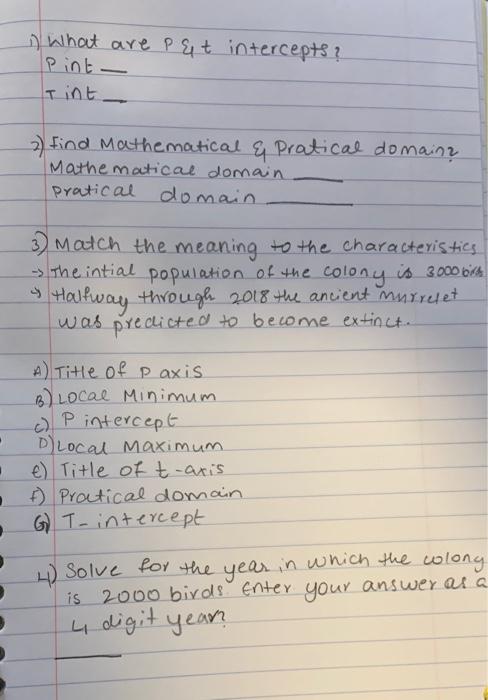 1) What are P & t intercepts?
P int __
T int __
2) find Mathematical & Pratical domain?
Mathematical domain ____
pratical domain ____
3) Match the meaning to the characteristics
-> The intial population of the colony is 3000 birds
-> Halfway through 2018 the ancient murrelet
was predicted to become extinct.
A) Title of P axis
B) Local Minimum
C) P intercept
D) Local Maximum
e) Title of t-axis
f) Pratical domain
G) T-intercept
4) Solve for the year in which the colony
is 2000 birds. Enter your answer as a
4 digit year?
____